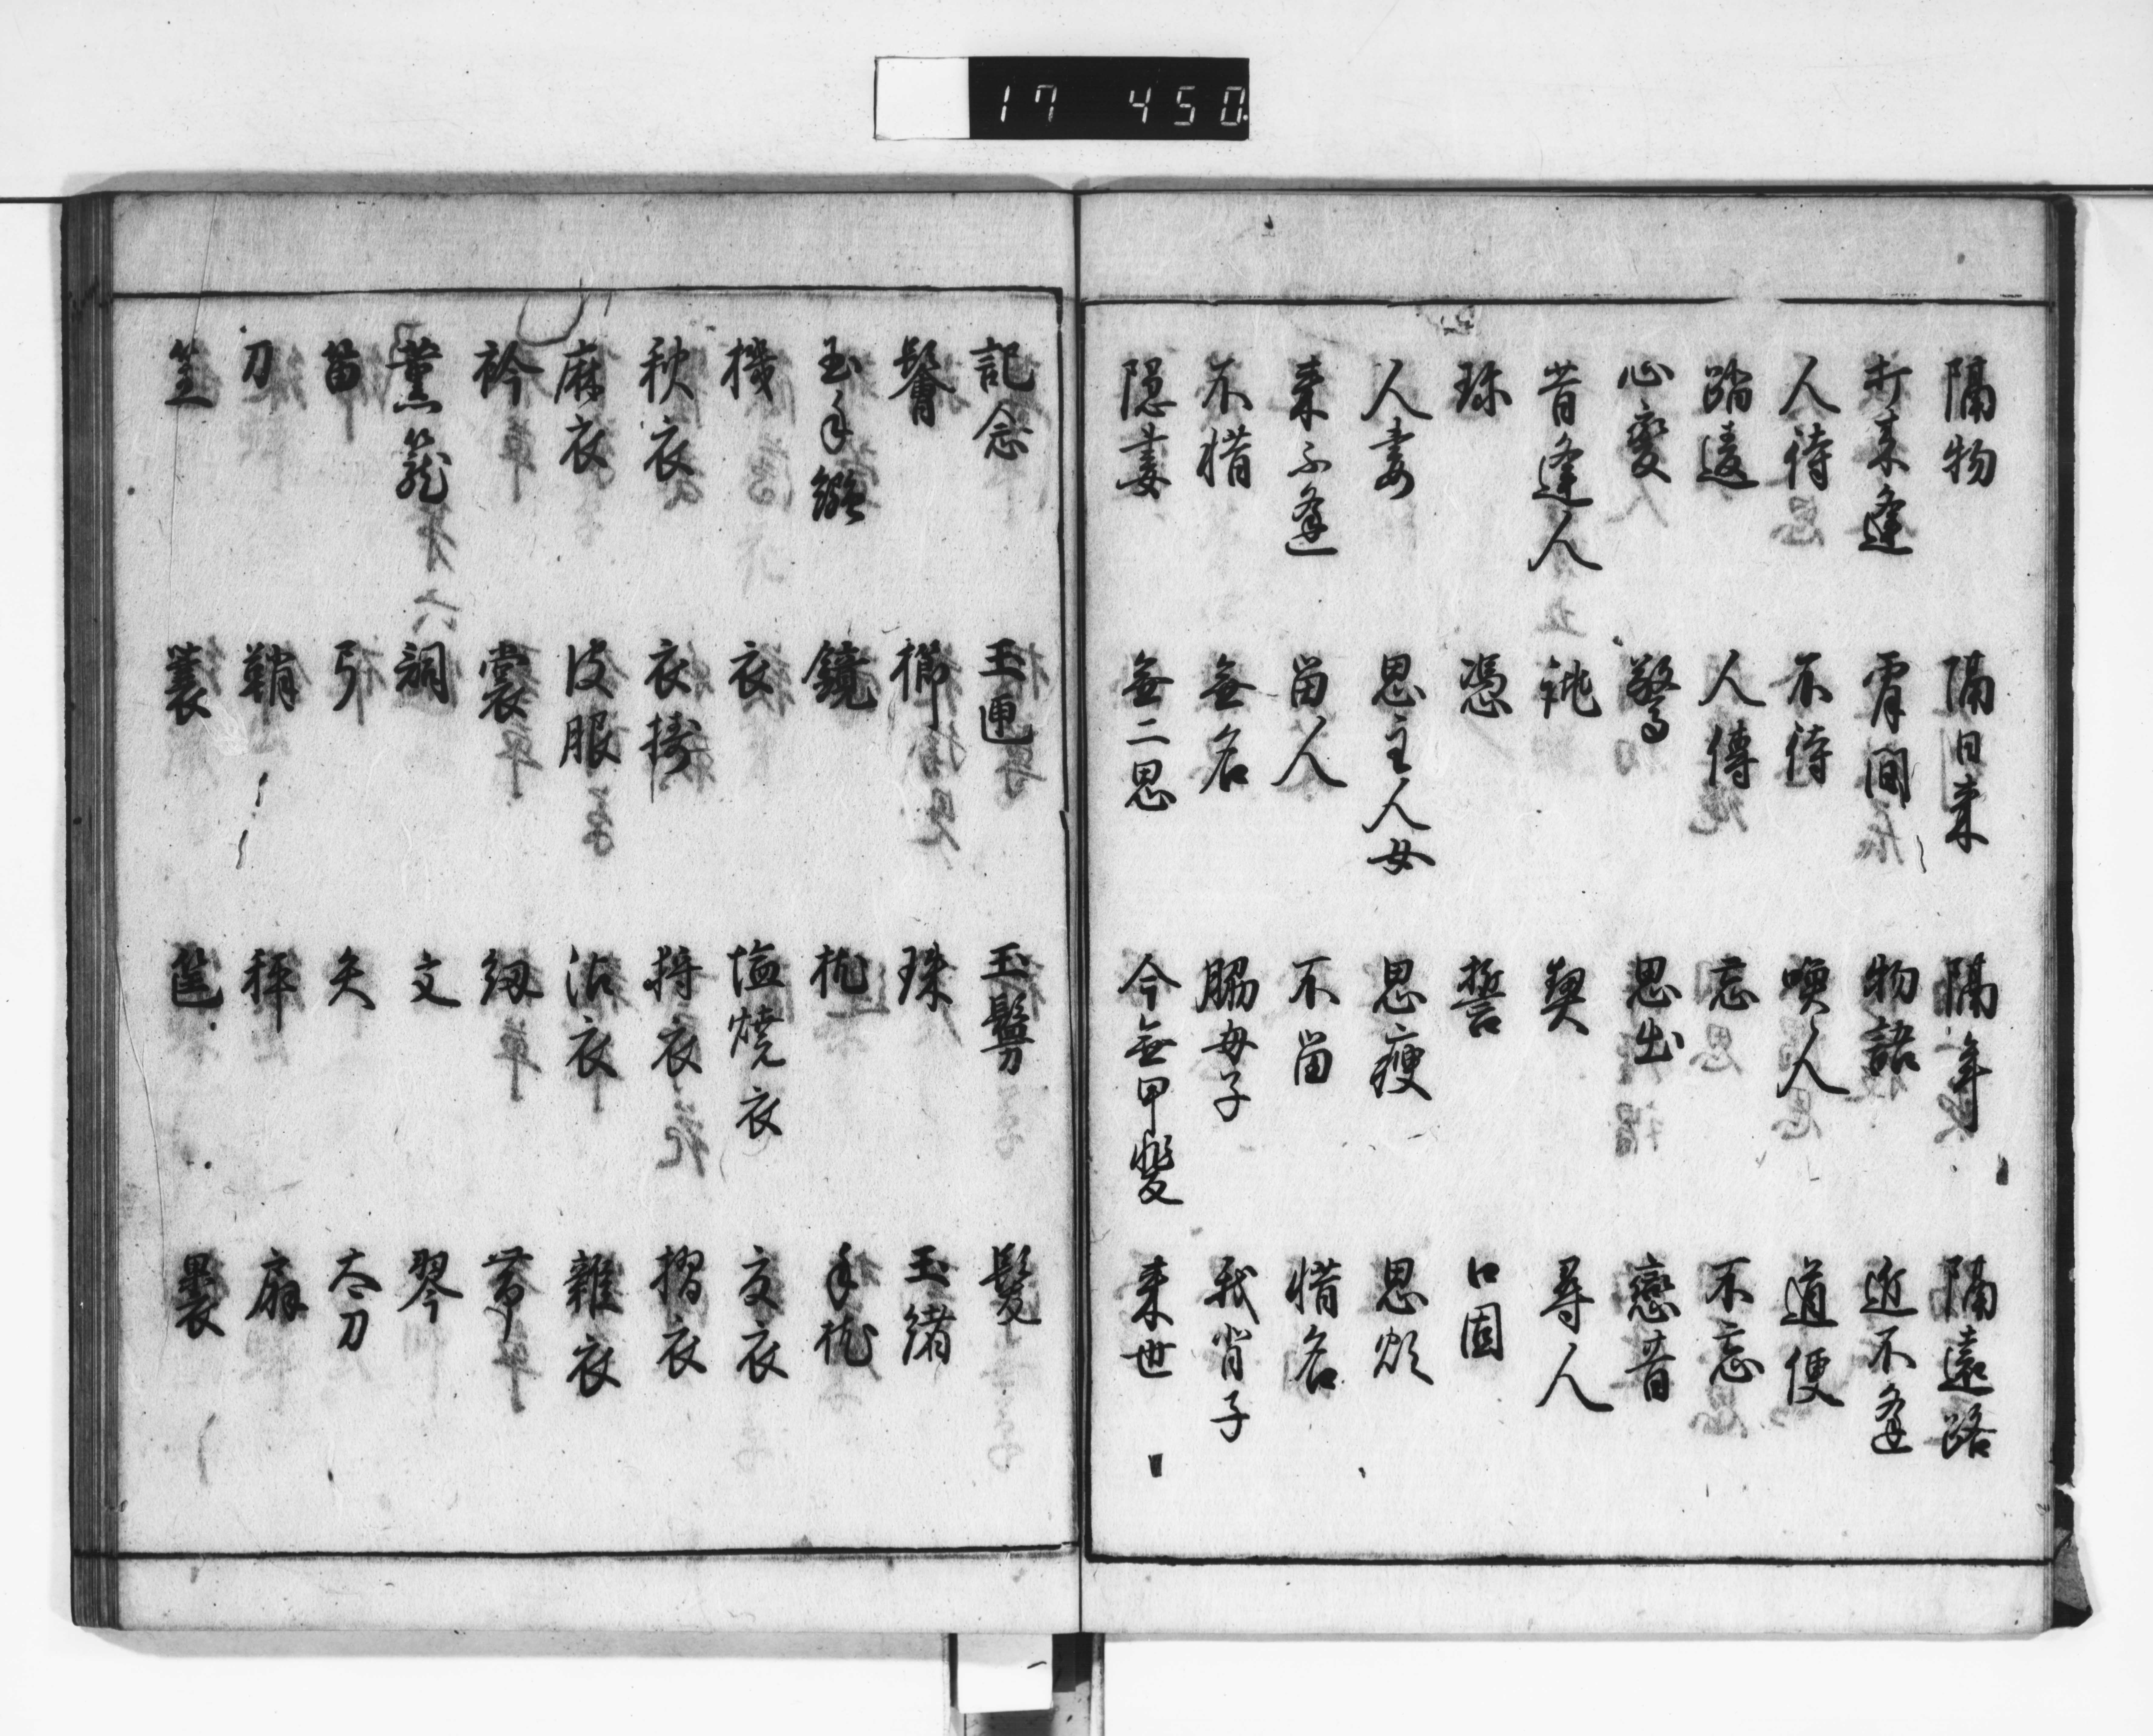 17 450
隔物 隔日来 隔年 隔遠路
打来逢 宵間 物語 近不逢
人待 不待 喚人 道便
蹈違 人傳 忘 不忘
心變 驚 思出 戀昔
昔逢人 誂 契 尋人
珎 憑 誓 口固
人妻 思主人女 思瘦 思煩
来不逢 留人 不留 惜名
不惜 無名 脇母子 我背子
隠妻 無二思 今無甲斐 来世
記念 玉匣 玉鬘 髪
鬠 櫛 珠 玉緒
玉手繦 鏡 枕 手枕
機 衣 塩燒衣 夏衣
秋衣 衣擣 狩衣 摺衣
麻衣 皮服 沾衣 雜衣
衿 裳 紐 帯
薫籠 詞 文 琴
笛 弓 矢 太刀
刀 鞘 秤 扇
笠 蓑 筐